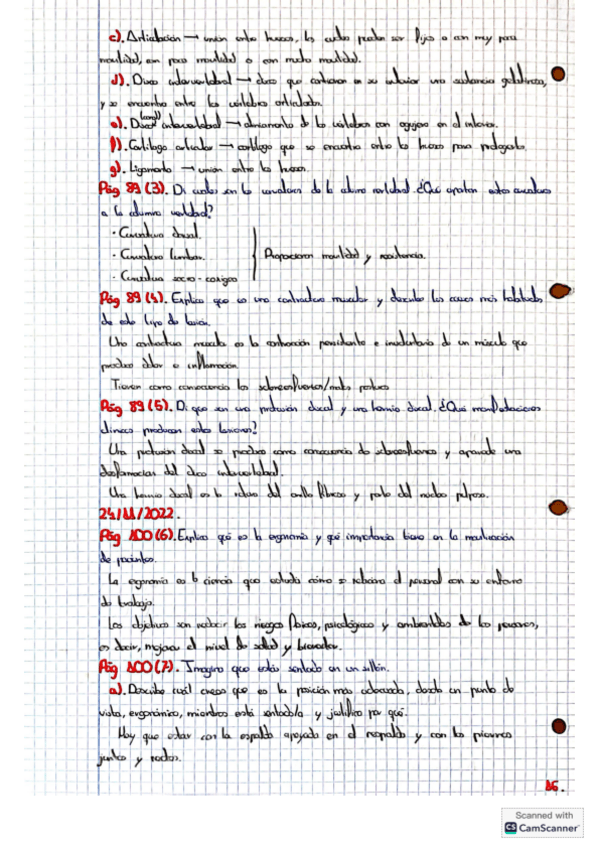 c). Articulación → unión entre huesos, los cuales pueden ser fijos o con muy poca
movilidad, con poca movilidad o con mucha movilidad.
d). Disco intervertebral → disco que contienen en su interior una sustancia gelatinosa,
y se encuentra entre las vértebras articuladas.
e). (canal) intervertebral → alineamiento de las vértebras con agujero en el interior.
f). Cartílago articular → cartílago que se encuentra entre los huesos para protegerlo.
g). Ligamento → unión entre los huesos.
Pág 89 (3). Di cuales son las curvaturas de la columna vertebral. ¿Qué aportan estas curvaturas
a la columna vertebral?
· Curvatura dorsal.
· Curvatura lumbar.
Proporcionan movilidad y resistencia.
· Curvatura sacro-coxígea
Pág 89 (4). Explica que es una contractura muscular y describe las causas más habituales
de este tipo de lesión.
Una contractura muscular es la contracción persistente e involuntaria de un músculo que
produce dolor e inflamación.
Tienen como consecuencia los sobreesfuerzos/malas posturas
Pág 89 (5). Di que son una protusión discal y una hernia discal. ¿Qué manifestaciones
clínicas producen estas lesiones?
Una protusión discal se produce como consecuencia de sobreesfuerzos y aparece una
deformación del disco intervertebral.
Una hernia discal es la rotura del anillo fibroso y parte del núcleo pulposo.
24/11/2022.
Pág 100 (6). Explica qué es la ergonomía y qué importancia tiene en la movilización
de pacientes.
La ergonomía es la ciencia que estudia cómo se relaciona el personal con su entorno
de trabajo.
Los objetivos son reducir los riesgos físicos, psicológicos y ambientales de las personas,
es decir, mejorar el nivel de salud y bienestar.
Pág 100 (7). Imagina que estás sentado en un sillón.
a). Describe cuál crees que es la posición más adecuada, desde un punto de
vista, ergonómico, mientras está sentado/a y justifica por qué.
Hay que estar con la espalda apoyada en el respaldo y con las piernas
juntas y rectas.
86.
Scanned with
CS CamScanner